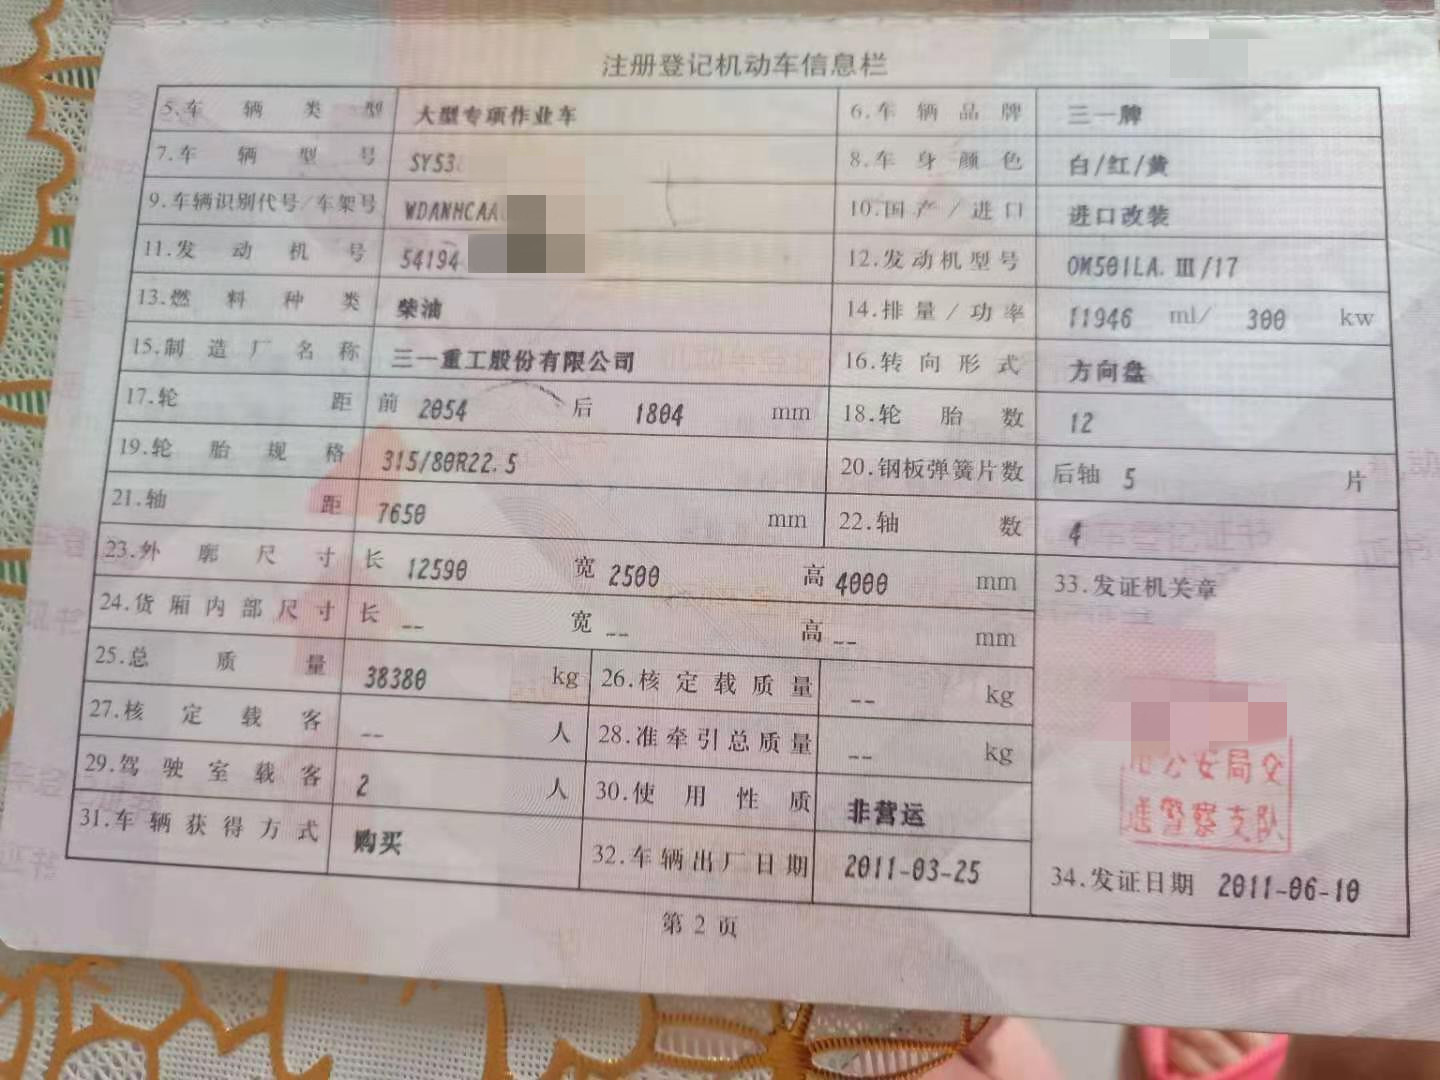 注册登记机动车信息栏
5.车辆类型 大型专项作业车 6.车辆品牌 三一牌
7.车辆型号 SY53 8.车身颜色 白/红/黄
9.车辆识别代号/车架号 WDANHCAA 10.国产/进口 进口改装
11.发动机号 54194 12.发动机型号 OM501LA.Ⅲ/17
13.燃料种类 柴油 14.排量/功率 11946 ml/ 300 kw
15.制造厂名称 三一重工股份有限公司 16.转向形式 方向盘
17.轮距 前 2054 后 1804 mm 18.轮胎数 12
19.轮胎规格 315/80R22.5 20.钢板弹簧片数 后轴 5 片
21.轴距 7650 mm 22.轴数 4
23.外廓尺寸 长 12590 宽 2500 高 4000 mm 33.发证机关章
24.货厢内部尺寸 长 -- 宽 -- 高 -- mm
25.总质量 38380 kg 26.核定载质量 -- kg
27.核定载客 -- 人 28.准牵引总质量 -- kg
29.驾驶室载客 2 人 30.使用性质 非营运
公安局交
通警察支队
31.车辆获得方式 购买 32.车辆出厂日期 2011-03-25 34.发证日期 2011-06-10
第2页